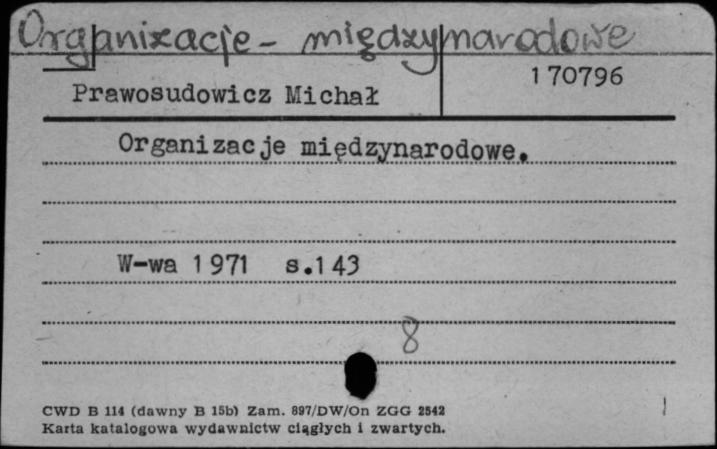 Organizacje - międzynarodowe
170796
Prawosudowicz Michał
Organizacje międzynarodowe.
W-wa 1971 s.143
8
CWD B 114 (dawny B 15b) Zam. 897/DW/On ZGG 2542
Karta katalogowa wydawnictw ciągłych i zwartych.